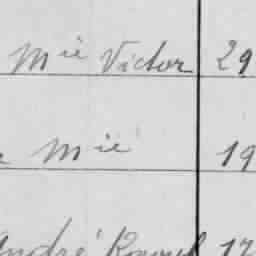 Mie Victor 29
Mie 19
André 17